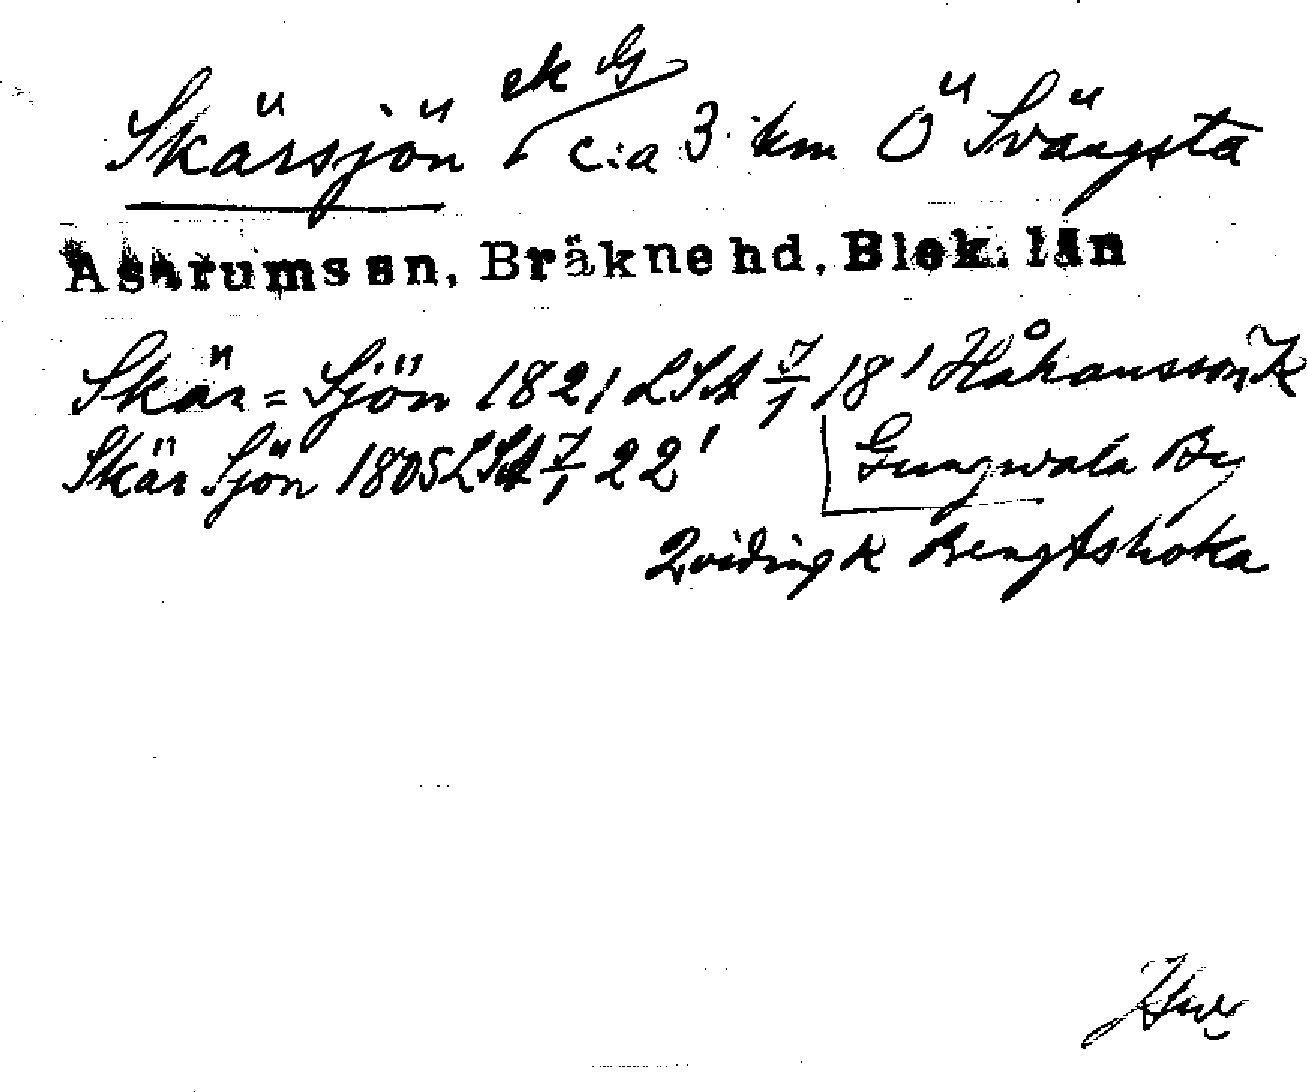 ek G
Skärsjön c:a 3 km Ö Svängsta
Asarums sn, Bräkne hd, Blek. län
Skär=Sjön 1821 LSA 7/1 18' Håkansson K
Skär Sjön 1805 LSA 7/1 22' Gungwala By
Qviding K Bengtshoka